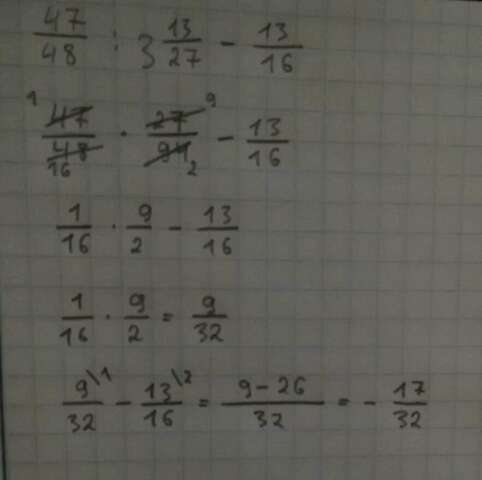 47/48 : 3 13/27 - 13/16
1 47/48 16 · 27/94 9 2 - 13/16
1/16 · 9/2 - 13/16
1/16 · 9/2 = 9/32
9\1/32 - 13\2/16 = 9-26/32 = - 17/32